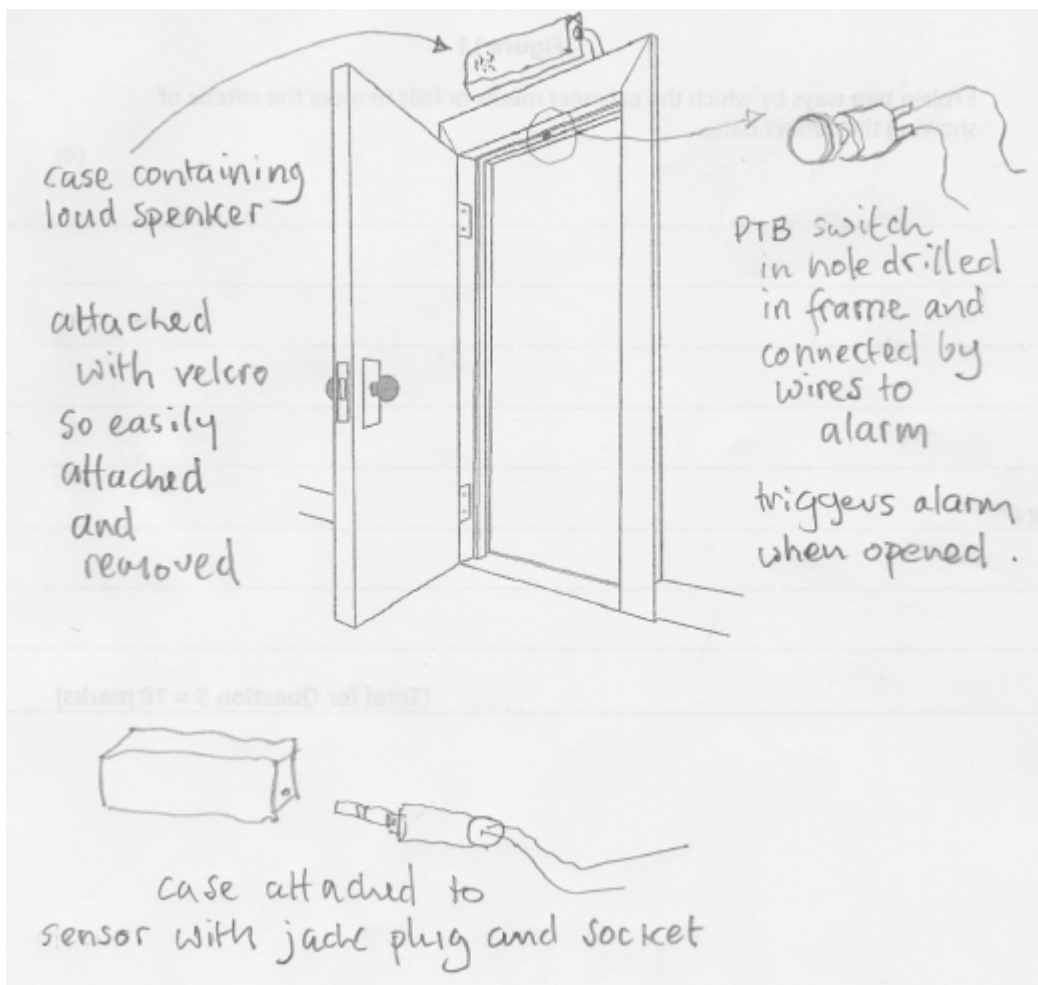 case containing
loud speaker
attached
with velcro
so easily
attached
and
removed
PTB switch
in hole drilled
in frame and
connected by
wires to
alarm
triggers alarm
when opened.
case attached to
sensor with jack plug and socket
(Total for Question 5 = 10 marks)